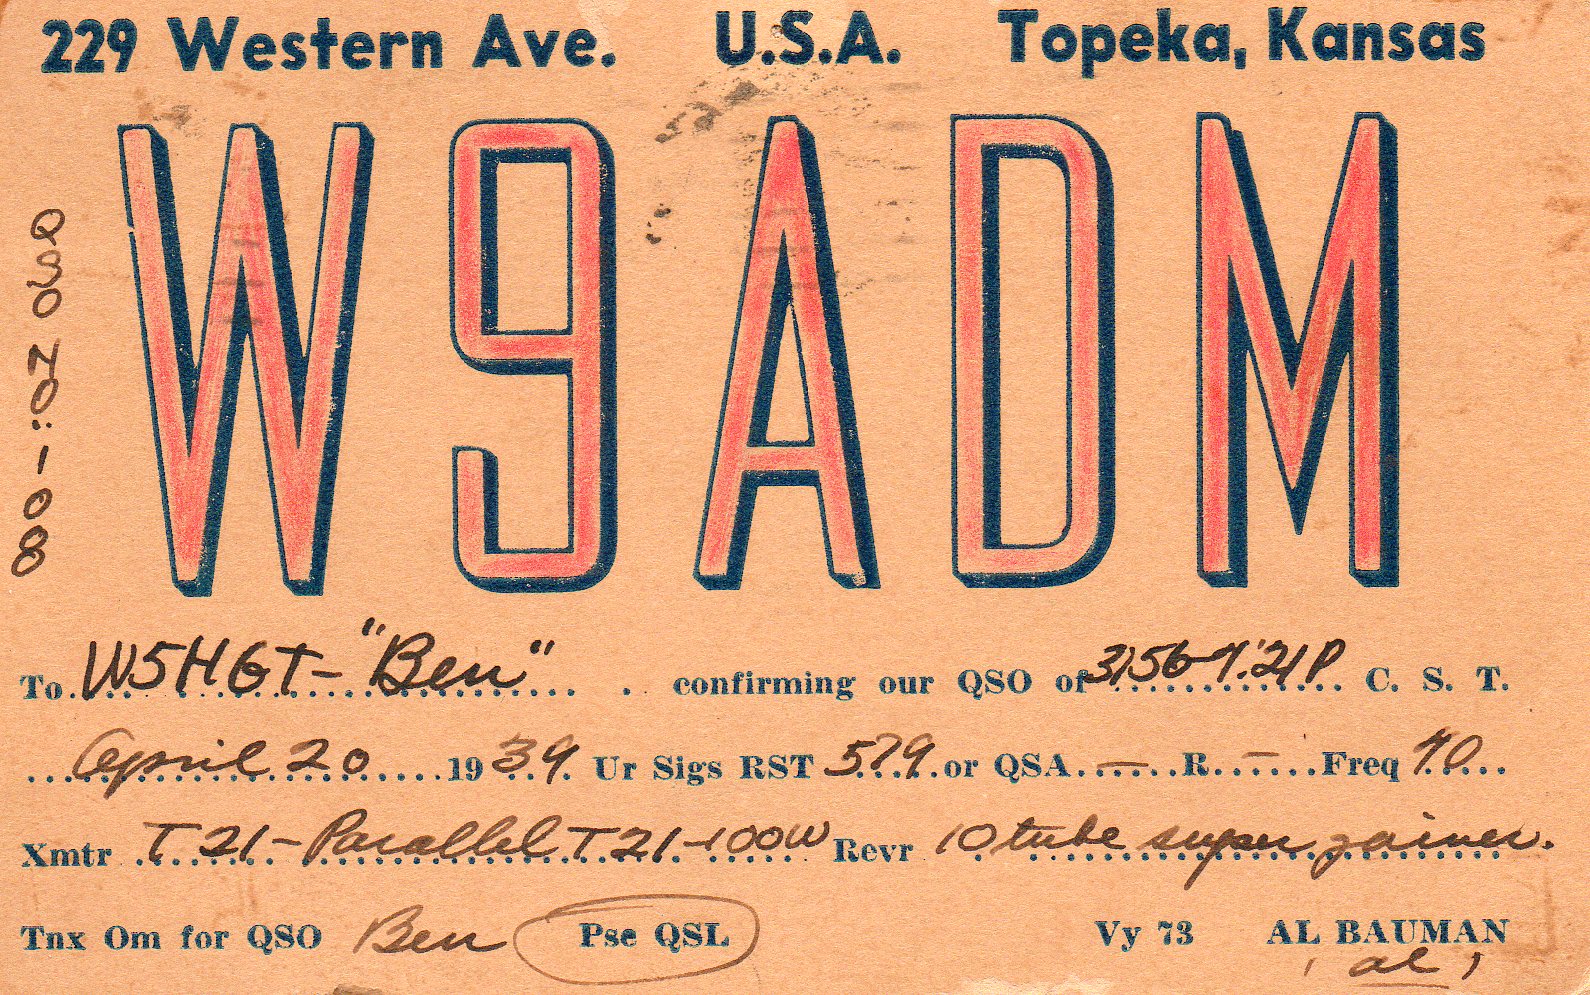 229 Western Ave. U.S.A. Topeka, Kansas
W9ADM
QSO NO:-108
To W5HGT-"Ben" confirming our QSO of 7:21P C. S. T.
April 20 1939 Ur Sigs RST 579 or QSA — R — Freq 40
Xmtr T21-Parallel T21-100W Revr 10 tube super gainer.
Tnx Om for QSO Ben Pse QSL Vy 73 AL BAUMAN
"al"